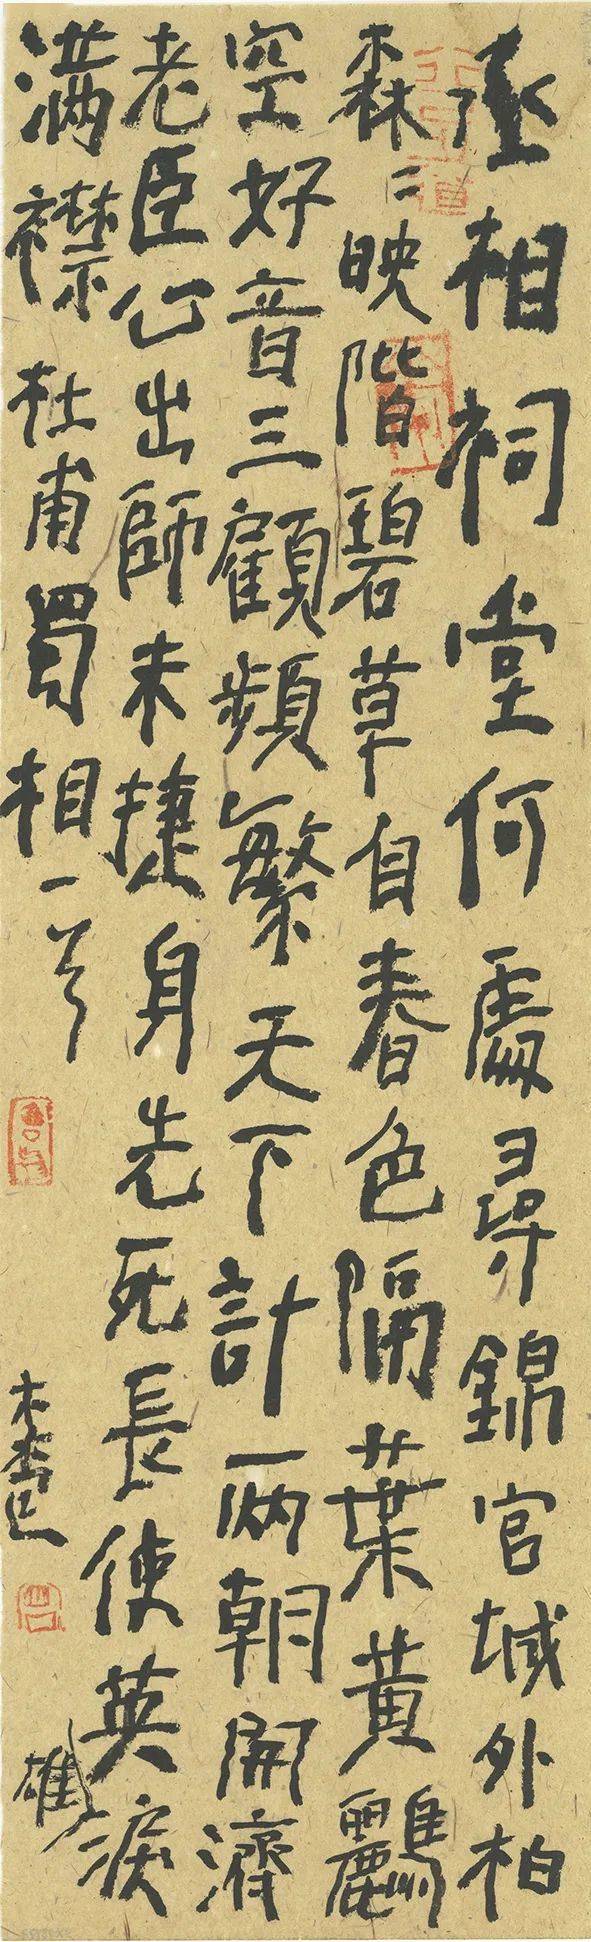 丞相祠堂何處尋錦官城外柏
森〻映階碧草自春色隔葉黃鸝
空好音三顧頻繁天下計兩朝開濟
老臣心出師未捷身先死長使英淚
雄
滿襟杜甫蜀相一首